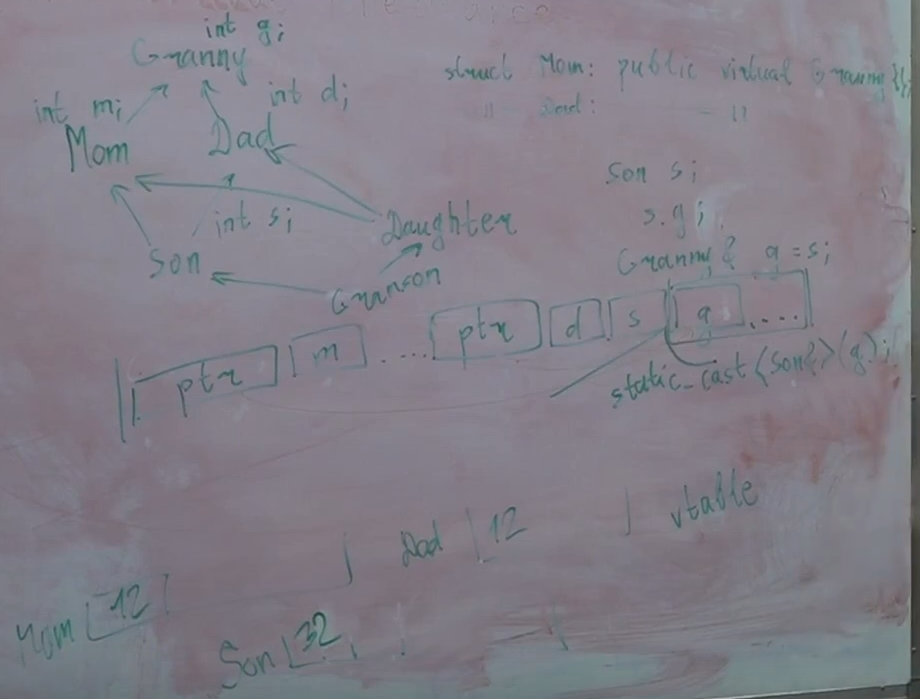 int g;
Granny
int m;
int d;
Mom
Dad
int s;
Son
Daughter
Granson
struct Mom: public virtual Granny {};
" Dad: — "
Son s;
s.g;
Granny& g = s;
ptr m .... ptr d s g ....
static_cast<Son&>(g);
Mom 12
Dad 12
vtable
Son 32